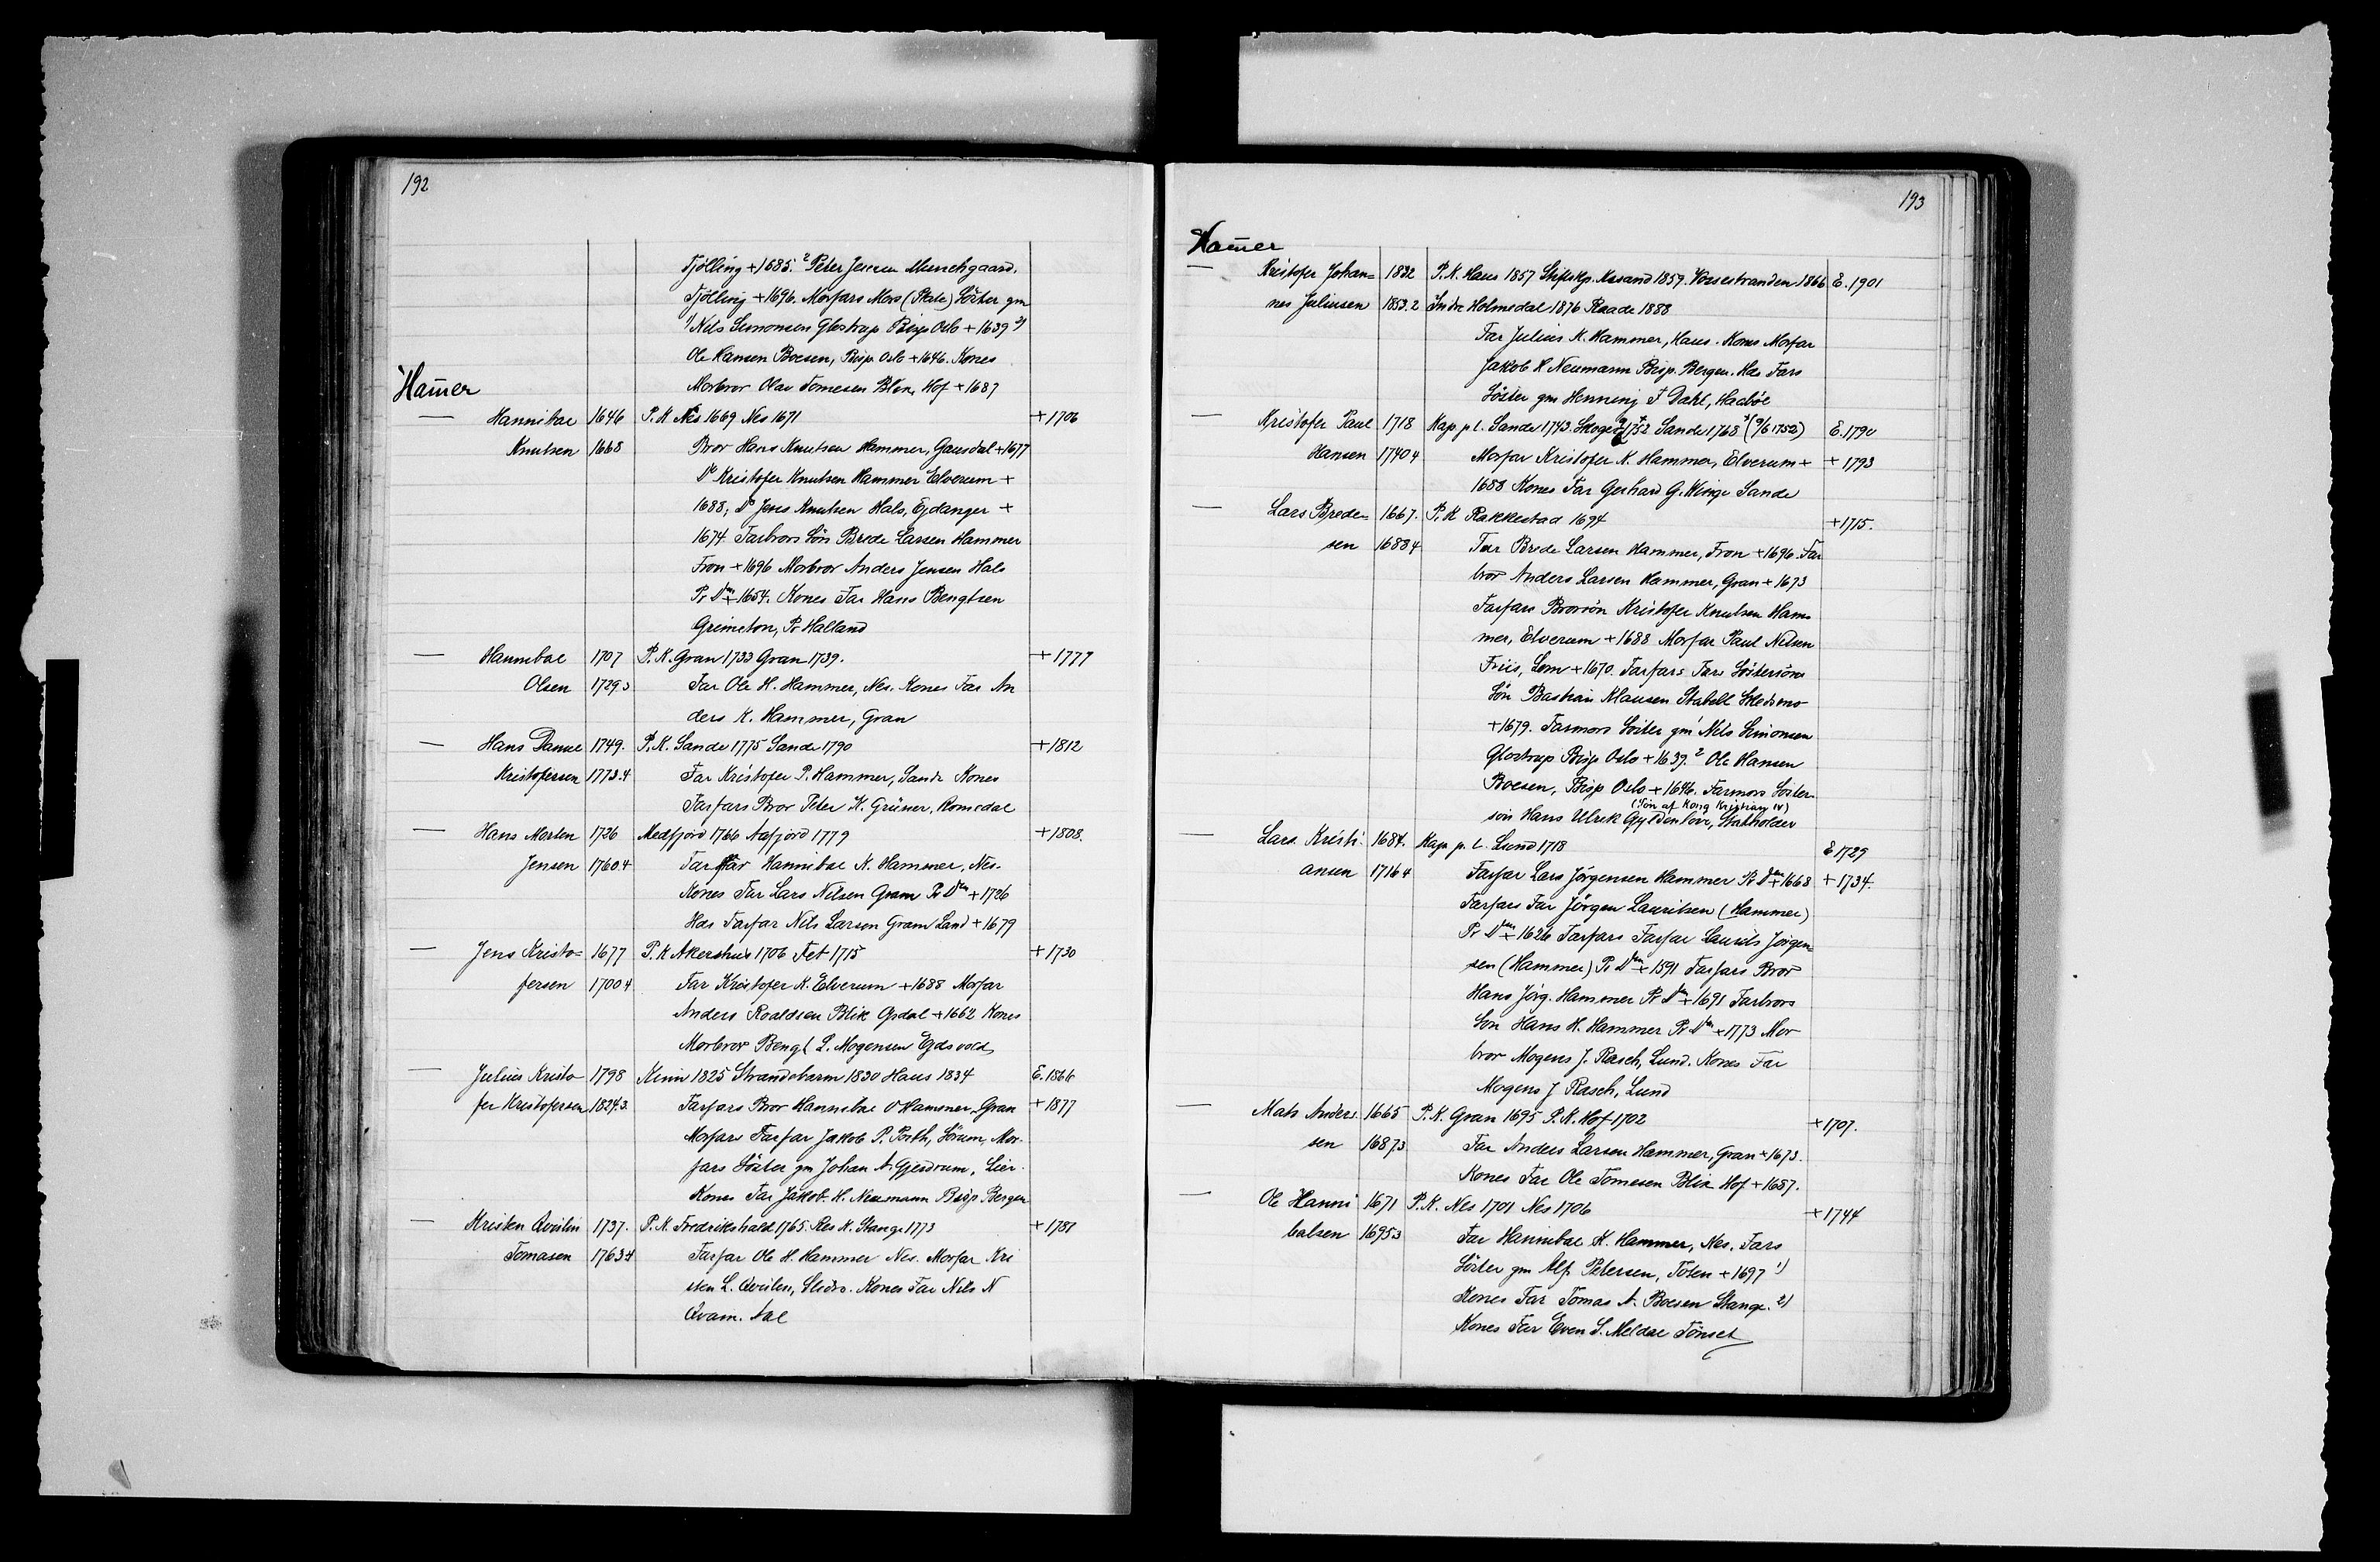 192
Tjölling +1685. 2 Peter Jensen Munchgaard.
Tjölling +1696. Morfars Mors (Skele) Söster gm
1) Nils Simonsen Glostrup Bisp Oslo +1639 2)
Ole Hansen Boesen, Bisp. Oslo +1646. Kones
Morbror Olav Tomesen Blix, Hof +1687
Ham̄er
— Hannibal 1646 P. K Nes 1669 Nes 1671 +1706
Knutsen 1668 Bror Hans Knutsen Hammer, Gausdal +1677
Do Kristofer Knutsen Hammer Elverum +
1688; Do Jens Knutsen Hals, Ejdanger +
1674. Farbrors Sön Brede Larsen Hammer
Fron +1696 Morbror Anders Jensen Hals
Pr Dm +1654. Kones Far Hans Bengtsen
Grimeton, Pr Halland
— Hannibal 1707 P. K. Gran 1733 Gran 1739. +1777
Olsen 1729.3 Far Ole H. Hammer, Nes. Kones Far An
ders K. Hammer, Gran
— Hans Danie 1749. P. K. Sande 1775 Sande 1790 +1812
Kristofersen 1773.4 Far Kristofer P. Hammer, Sande Kones
Farfars Bror Peter K. Grüner, Romsdal
— Hans Morten 1726 Medfjord 1766 Aafjord 1779 +1808.
Jensen 1760.4 Farfar Hannibal K. Hammer, Nes.
Kones Far Lars Nilsen Gram Pr Dm +1726
Hds Farfar Nils Larsen Gram Land +1679
— Jens Kristo= 1677 P. K Akershus 1706 Fet 1715 +1730
fersen 1700 4 Far Kristofer K. Elverum +1688 Morfar
Anders Roaldsen Blix Opdal +1662 Kones
Morbror Bengt L. Mogensen Ejdsvold
— Julius Kristo 1798 Kinn 1825 Strandebarm 1830 Haus 1834 E. 1866
fer Kristofersen 1824.3. Farfars Bror Hannibal O Hammer, Gran +1877
Morfars Farfar Jakob P. Porth, Sörum, Mor-
fars Söster gm Johan A. Gjerdrum, Lier.
Kones Far Jakob. H. Neumann Bisp. Bergen
— Kristen Qvislin 1737. P. K. Fredrikshald 1765. Res K. Stange 1773 +1781
Tomasen 1763 4 Farfar Ole H. Hammer Nes. Morfar Kri
sten L. Qvislin, Slidro. Kones Far Nils N
Qvam. Aal
193
Ham̄er
— Kristofer Johan= 1832 P. K. Haus 1857 Stiftskp. Krsand 1859. Vossestranden 1866 E. 1901
nes Juliusen 1853.2 Indre Holmedal 1876 Raade 1888
Far Julius K. Hammer, Haus. Kones Morfar
Jakob K Neumann Bisp. Bergen. Hds Fars
Söster gm Henning F Dahl, Hadböl
— Kristofer Paul 1718 Kap p. l. Sande 1743. Skoger 1752 Sande 1768 (9/6 1752) E. 1790
Hansen 1740 4 Morfar Kristofer K. Hammer, Elverum + +1793
1688 Kones Far Gerhard G. Winge Sande
— Lars Brede= 1667. P. K Rakkestad 1694 +1715.
sen 1688 4 Far Brede Larsen Hammer, Fron +1696. Far
bror Anders Larsen Hammer, Gran +1673
Farfars Brorsön Kristofer Knutsen Ham
mer, Elverum +1688 Morfar Paul Nilsen
Friis, Lom +1670. Farfars Fars Söstersöns
Sön Bastian Klausen Stabell Skedsmo
+1679. Farmors Söster gm 1 Nils Simonsen
Glostrup Bisp Oslo +1639. 2 Ole Hansen
Boesen, Bisp Oslo +1646. Farmors Söster-
(Sön af Kong Kristian IV)
sön Hans Ulrik Gyldenlöve, Statholder
— Lars Kristi 1684. Kap p. L. Lund 1718 E 1729
ansen 1716 4 Farfar Lars Jörgensen Hammer Pr Dm +1668 +1734.
Farfars Far Jörgen Lauritsen (Hammer)
Pr Dm +1626 Farfars Farfar Laurits Jörgen=
sen (Hammer) Pr Dm +1591 Farfars Bror
Hans Jörg. Hammer Pr Dm +1691 Farbrors
Sön Hans H. Hammer Pr Dm +1773 Mor
bror Mogens J. Rasch, Lund. Kones Far
Mogens J Rasch, Lund
— Mats Anders 1665 P. K. Gran 1695 P. K. Hof 1702 +1707.
sen 1687.3 Far Anders Larsen Hammer, Gran +1673.
Kones Far Ole Tomesen Blix Hof +1687.
— Ole Hanni 1671 P. K. Nes 1701 Nes 1706 +1744
balsen 1695.3 Far Hannibal K. Hammer, Nes. Fars
Söster gm Alf Petersen, Toten +1697 1)
Kones Far Tomas A. Boesen Stange. 2)
Kones Far Even S. Meldal Tönset